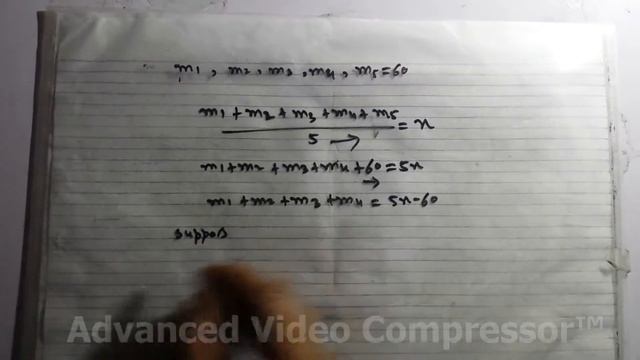 m1, m2, m3, m4, m5=60
m1+m2+m3+m4+m5
5
=x
m1+m2+m3+m4+60=5x
m1+m2+m3+m4=5x-60
suppos
Advanced Video Compressor™